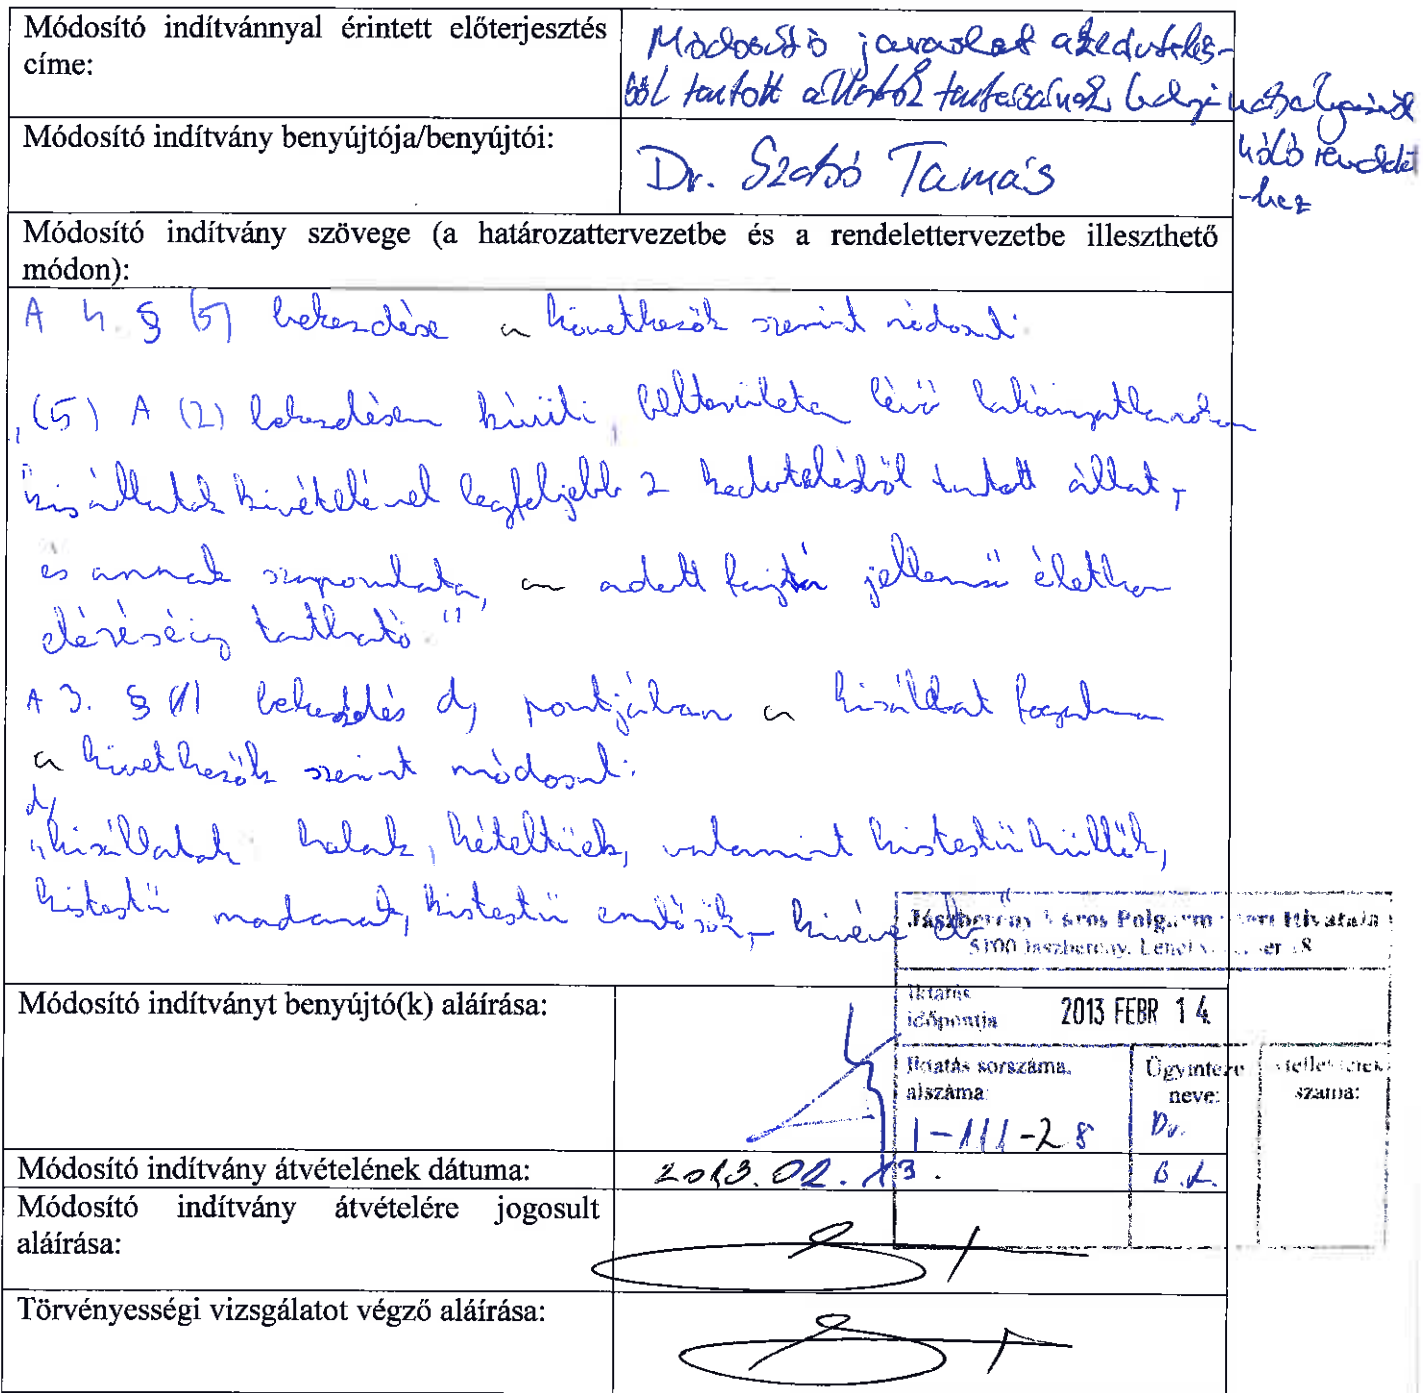 Módosító indítvánnyal érintett előterjesztés
címe:
Módosító javaslat a kedvtelés-
ből tartott állatok tartásának helyi szabályozásáról
szóló rendelet
-hez
Módosító indítvány benyújtója/benyújtói:
Dr. Szabó Tamás
Módosító indítvány szövege (a határozattervezetbe és a rendelettervezetbe illeszthető
módon):
A 4. § (5) bekezdése a következők szerint módosul:
„(5) A (2) bekezdésen kívüli, belterületen lévő lakóingatlanokon
kisállatok kivételével legfeljebb 2 kedvtelésből tartott állat,
és annak szaporulata, az adott fajta jellemző életkor
eléréséig tartható."
A 3. § (1) bekezdés d, pontjában a kisállat fogalma
a következők szerint módosul:
d,
„kisállatok halak, kétéltűek, valamint kistestű hüllők,
kistestű madarak, kistestű emlősök, kivéve eb"
Jászberény Város Polgármesteri Hivatala
5100 Jászberény, Lehel vezér tér 18
Módosító indítványt benyújtó(k) aláírása:
Iktatás
időpontja 2013 FEBR 14.
Iktatás sorszáma,
alszáma:
Ügyintéző
neve:
Mellékletek
száma:
I-111-28
Dr.
B.L.
Módosító indítvány átvételének dátuma:
2013.02.13.
Módosító indítvány átvételére jogosult
aláírása:
Törvényességi vizsgálatot végző aláírása: